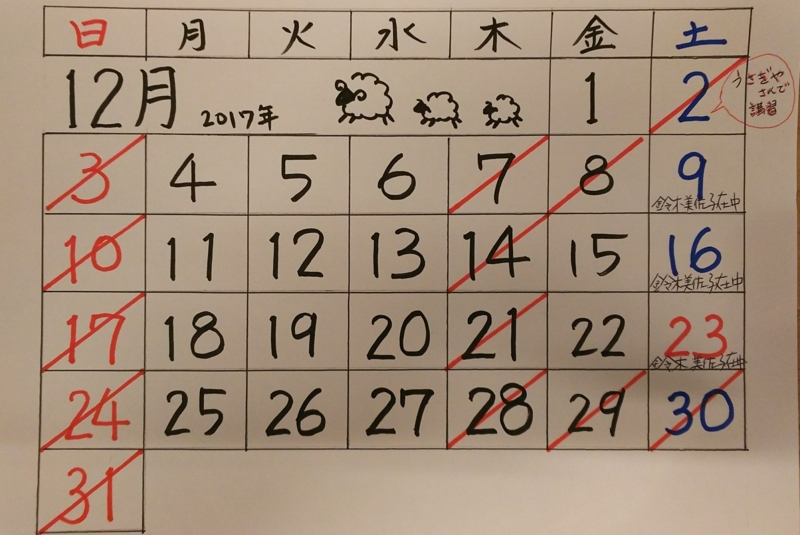 日 月 火 水 木 金 土
12月 2017年 1 2
うさぎや
さんで
講習
3 4 5 6 7 8 9
鈴木美佐子在中
10 11 12 13 14 15 16
鈴木美佐子在中
17 18 19 20 21 22 23
鈴木美佐子在中
24 25 26 27 28 29 30
31